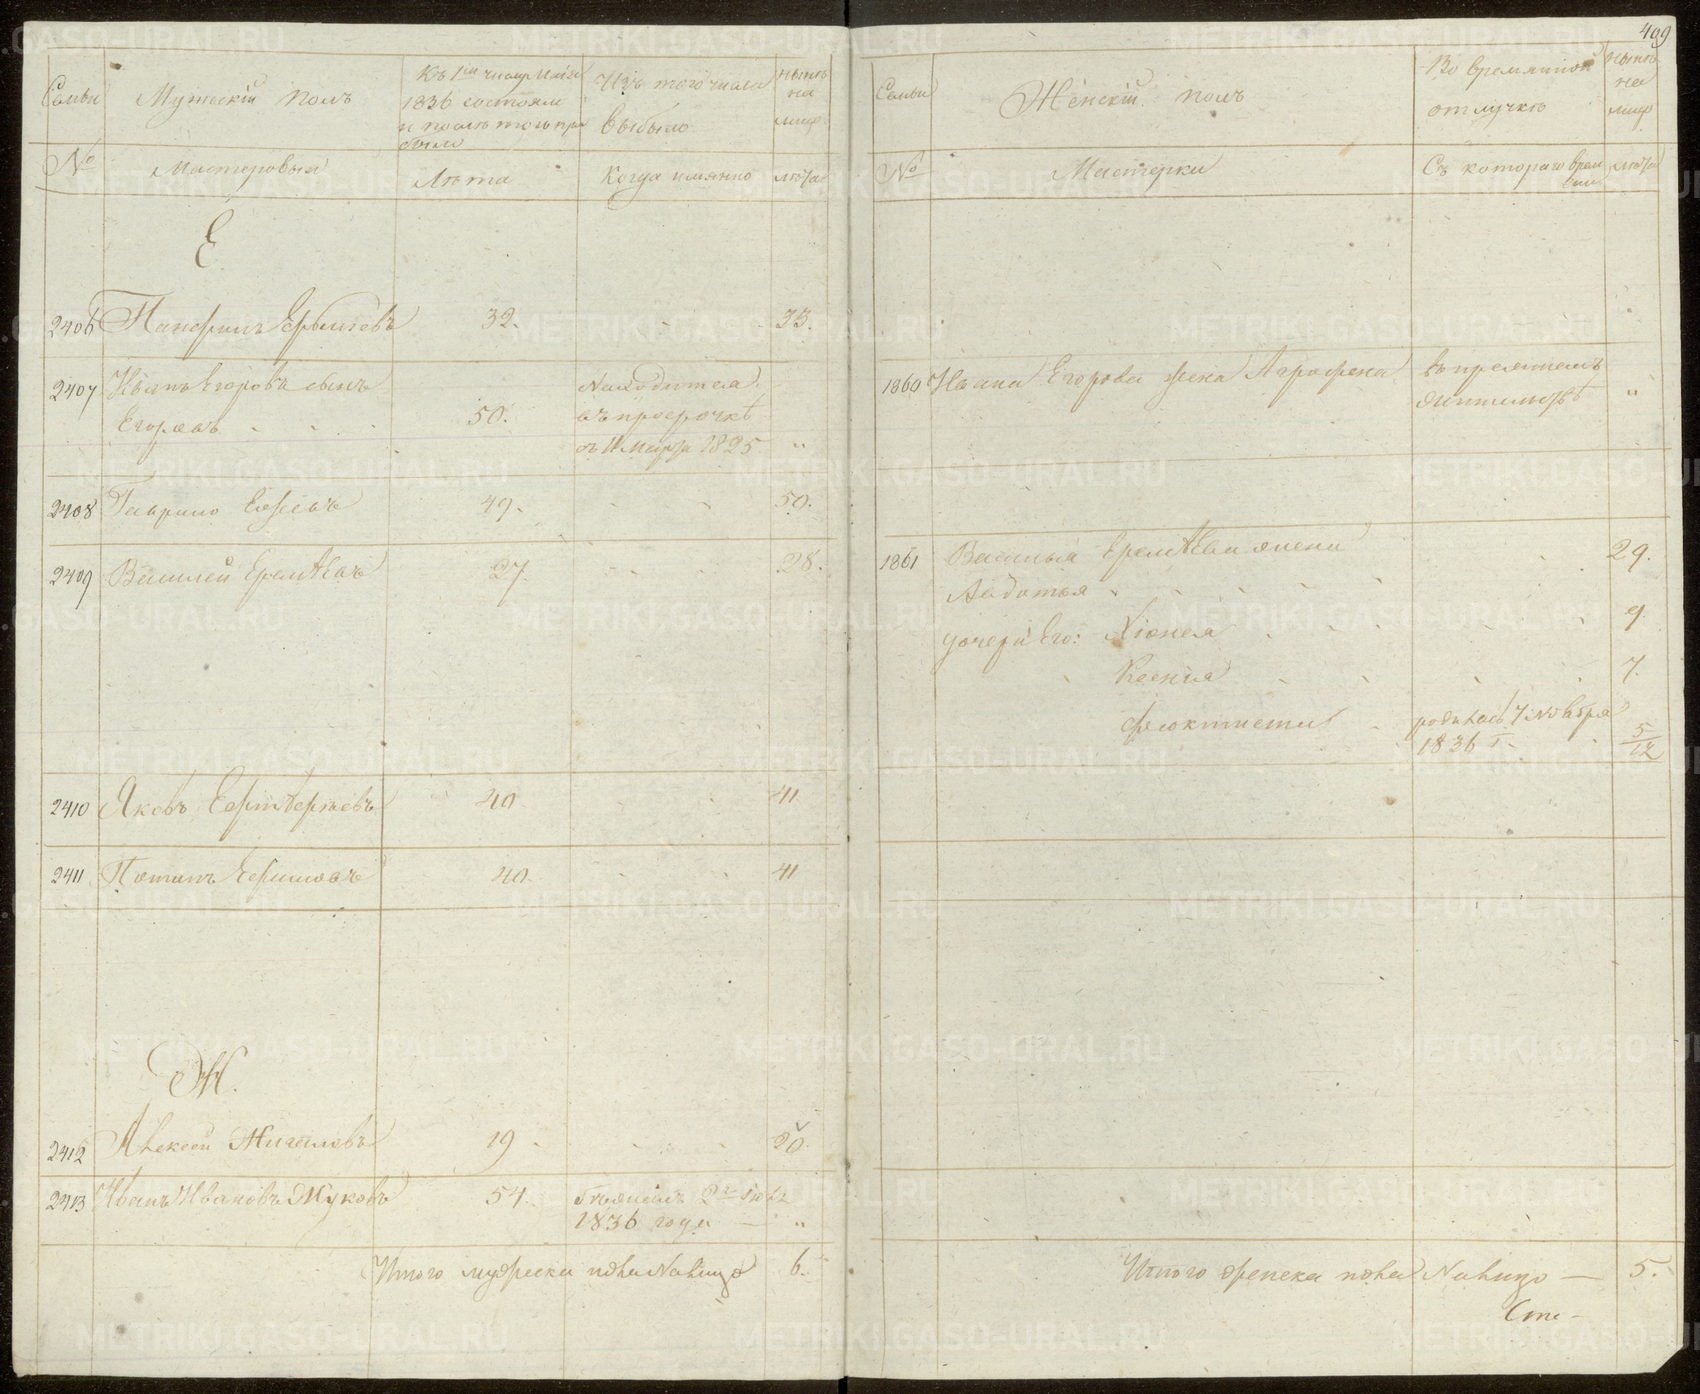 409
Семьи
Мужескій полъ
Къ 1му числу
1836 состояли
и после того при
были
Изъ того числа
выбыло
ныне
на
лицо
№
Мастеровыя
Лѣта
Когда имянно
лѣта
Е
2406 Панфилъ 32. 33.
2407 Иванъ Егоровъ сынъ
Егоровъ 50.
Находится
въ просрочкѣ
съ 11 Марта 1825 „
2408 Гаврило 49. 50.
2409 Василей Еремѣевъ 27. 28.
2410 Яковъ 40 41
2411 Потапъ Ефимовъ 40. 41
Ж.
2412 Алексей Жигаловъ 19 20.
2413 Иванъ Ивановъ Жуковъ 54.
1836 года — „
Итого мужеска пола Налицо 6.
Семьи
Женскій полъ
Во временной
отлучкѣ
ныне
на
лицо
№
Мастерки
Съ котораго врем
лѣта
1860 Ивана Егорова жена Аграфена
жительствѣ „
1861 Василья Еремѣева жена 29.
Авдотья
дочери Его: Хіонея 9.
Ксенія 7.
Феоктиста родилась 7 Ноября
1836 г. 5/12
Итого женска пола Налицо — 5.